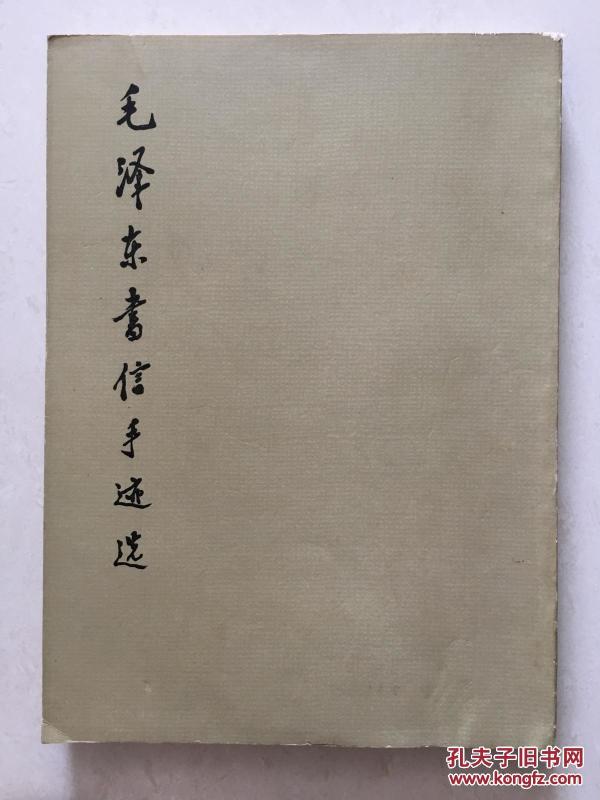 毛泽东書信手迹选
孔夫子旧书网
www.kongfz.com